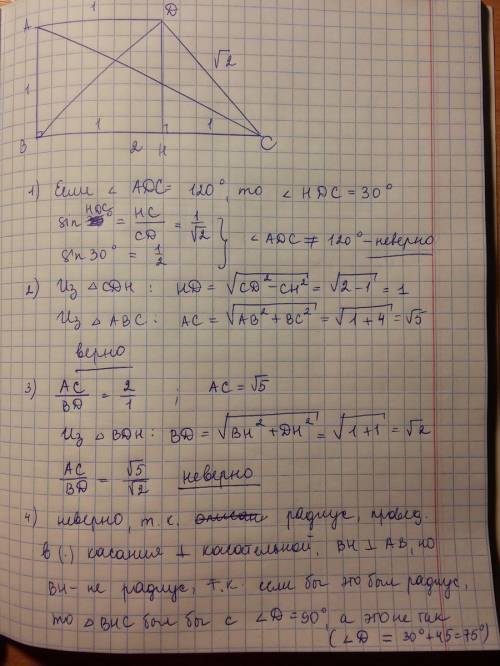 1
A D
√2
1
1 1
B 2 H C
1) Если ∠ ADC = 120°, то ∠ HDC = 30°
sin HDC = HC/CD = 1/√2
∠ ADC ≠ 120° - неверно
sin 30° = 1/2
2) Из △CDH : HD = √(CD² - CH²) = √(2-1) = 1
Из △ ABC : AC = √(AB² + BC²) = √(1+4) = √5
верно
3) AC/BD = 2/1 ; AC = √5
Из △ BDH : BD = √(BH² + DH²) = √(1+1) = √2
AC/BD = √5/√2 неверно
4) неверно, т.к. радиус, провед.
в (.) касания ⊥ касательной, BH ⊥ AB, но
BH - не радиус, т.к. если бы это был радиус,
то △ BHC был бы с ∠D = 90°, а это не так
(∠D = 30° + 45 = 75°)